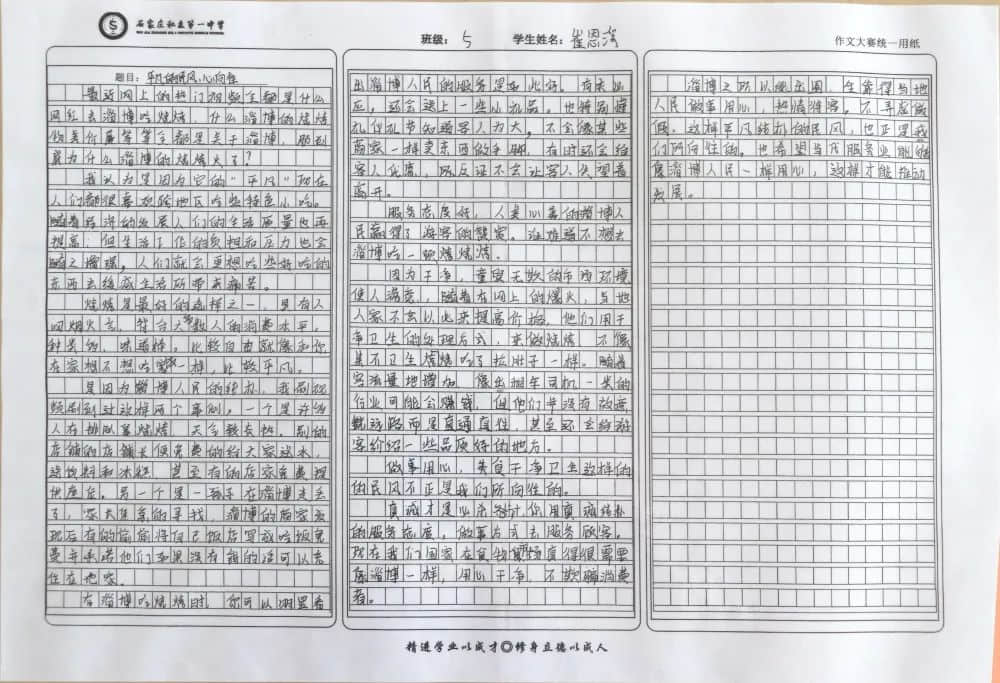 石家庄私立第一中学
班级： 5 学生姓名：崔恩
作文大赛统一用纸
题目：平凡的民风，心向往
最近网上的热门视频全都是什么
网红去淄博吃烧烤，什么淄博的烧烤
物美价廉等等全都是关于淄博，刷到
底为什么淄博的烧烤火了？
我认为是因为它的“平凡”现在
人们都很喜欢各地区吃些特色小吃。
随着经济的发展人们的生活质量也再
提高，但生活工作的负担和压力也会
随之增强。人们就会更想吃些好吃的
东西去缓减生活所带来痛苦。
烧烤是最好的选择之一，里有人
间烟火气，符合大多数人的消费水平，
种类多，味道棒。比较自由就像和你
在家想不想吃一样，比较平凡。
是因为淄博人民的我刷视
频刷到过这样两个事例。一个是许多
人在排队等烧烤，天气较炎热。别的
店铺的店铺长便免费的给大家送水，
送饮料和冰糕，甚至有的店家免费提
供座位。另一个是一孩子在淄博走丢
了，家长焦急的寻找，淄博的商家发
现后有的偷偷将自己饭店里做吃饭免
费并承诺他们如果没有钱的话可以免
住在他家。
在淄博吃烧烤时，你可以明显看
出淄博人民的服务是如此好。有求必
应，还会送上一些小礼品。也特别懂
礼仪礼节知道客人为大。不会像某些
商家一样卖东西做手脚，有时还会给
客人优惠，所以反正不会让客人失望着
离开。
服务态度好，人美心善的淄博人
民赢得了游客的赞赏。谁难道不想去
淄博吃一顿烧烤。
因为干净，童叟无欺的市内环境
使人满意，随着在网上的爆火，当地
人家不会以此来提高价格，他们用干
净卫生的处理方式，来做烧烤，不像
某不卫生烧烤吃了拉肚子一样。随着
客流量地增加，像出租车司机一类的
行业可能会赚钱，但他们并没有故意
绕远路而是直通直住，甚至还会给游
客介绍一些品质好的地方。
做事用心，失负干净卫生这样的
的民风不正是我们所向往的。
真诚才是必杀器计你用真诚
的服务态度，做事方式去服务顾客。
现在我们国家在食物市场真得很需要
像淄博一样，用心干净，不欺骗消费
者。
淄博之所以能出圈，全靠得当地
人民做事用心，热情待客。不寻虚做
假，这样平凡的民风，也正是我
们所向往的。也希望当代服务业能够
像淄博人民一样用心，这样才能推动
发展。
精进学业以成才 修身立德以成人